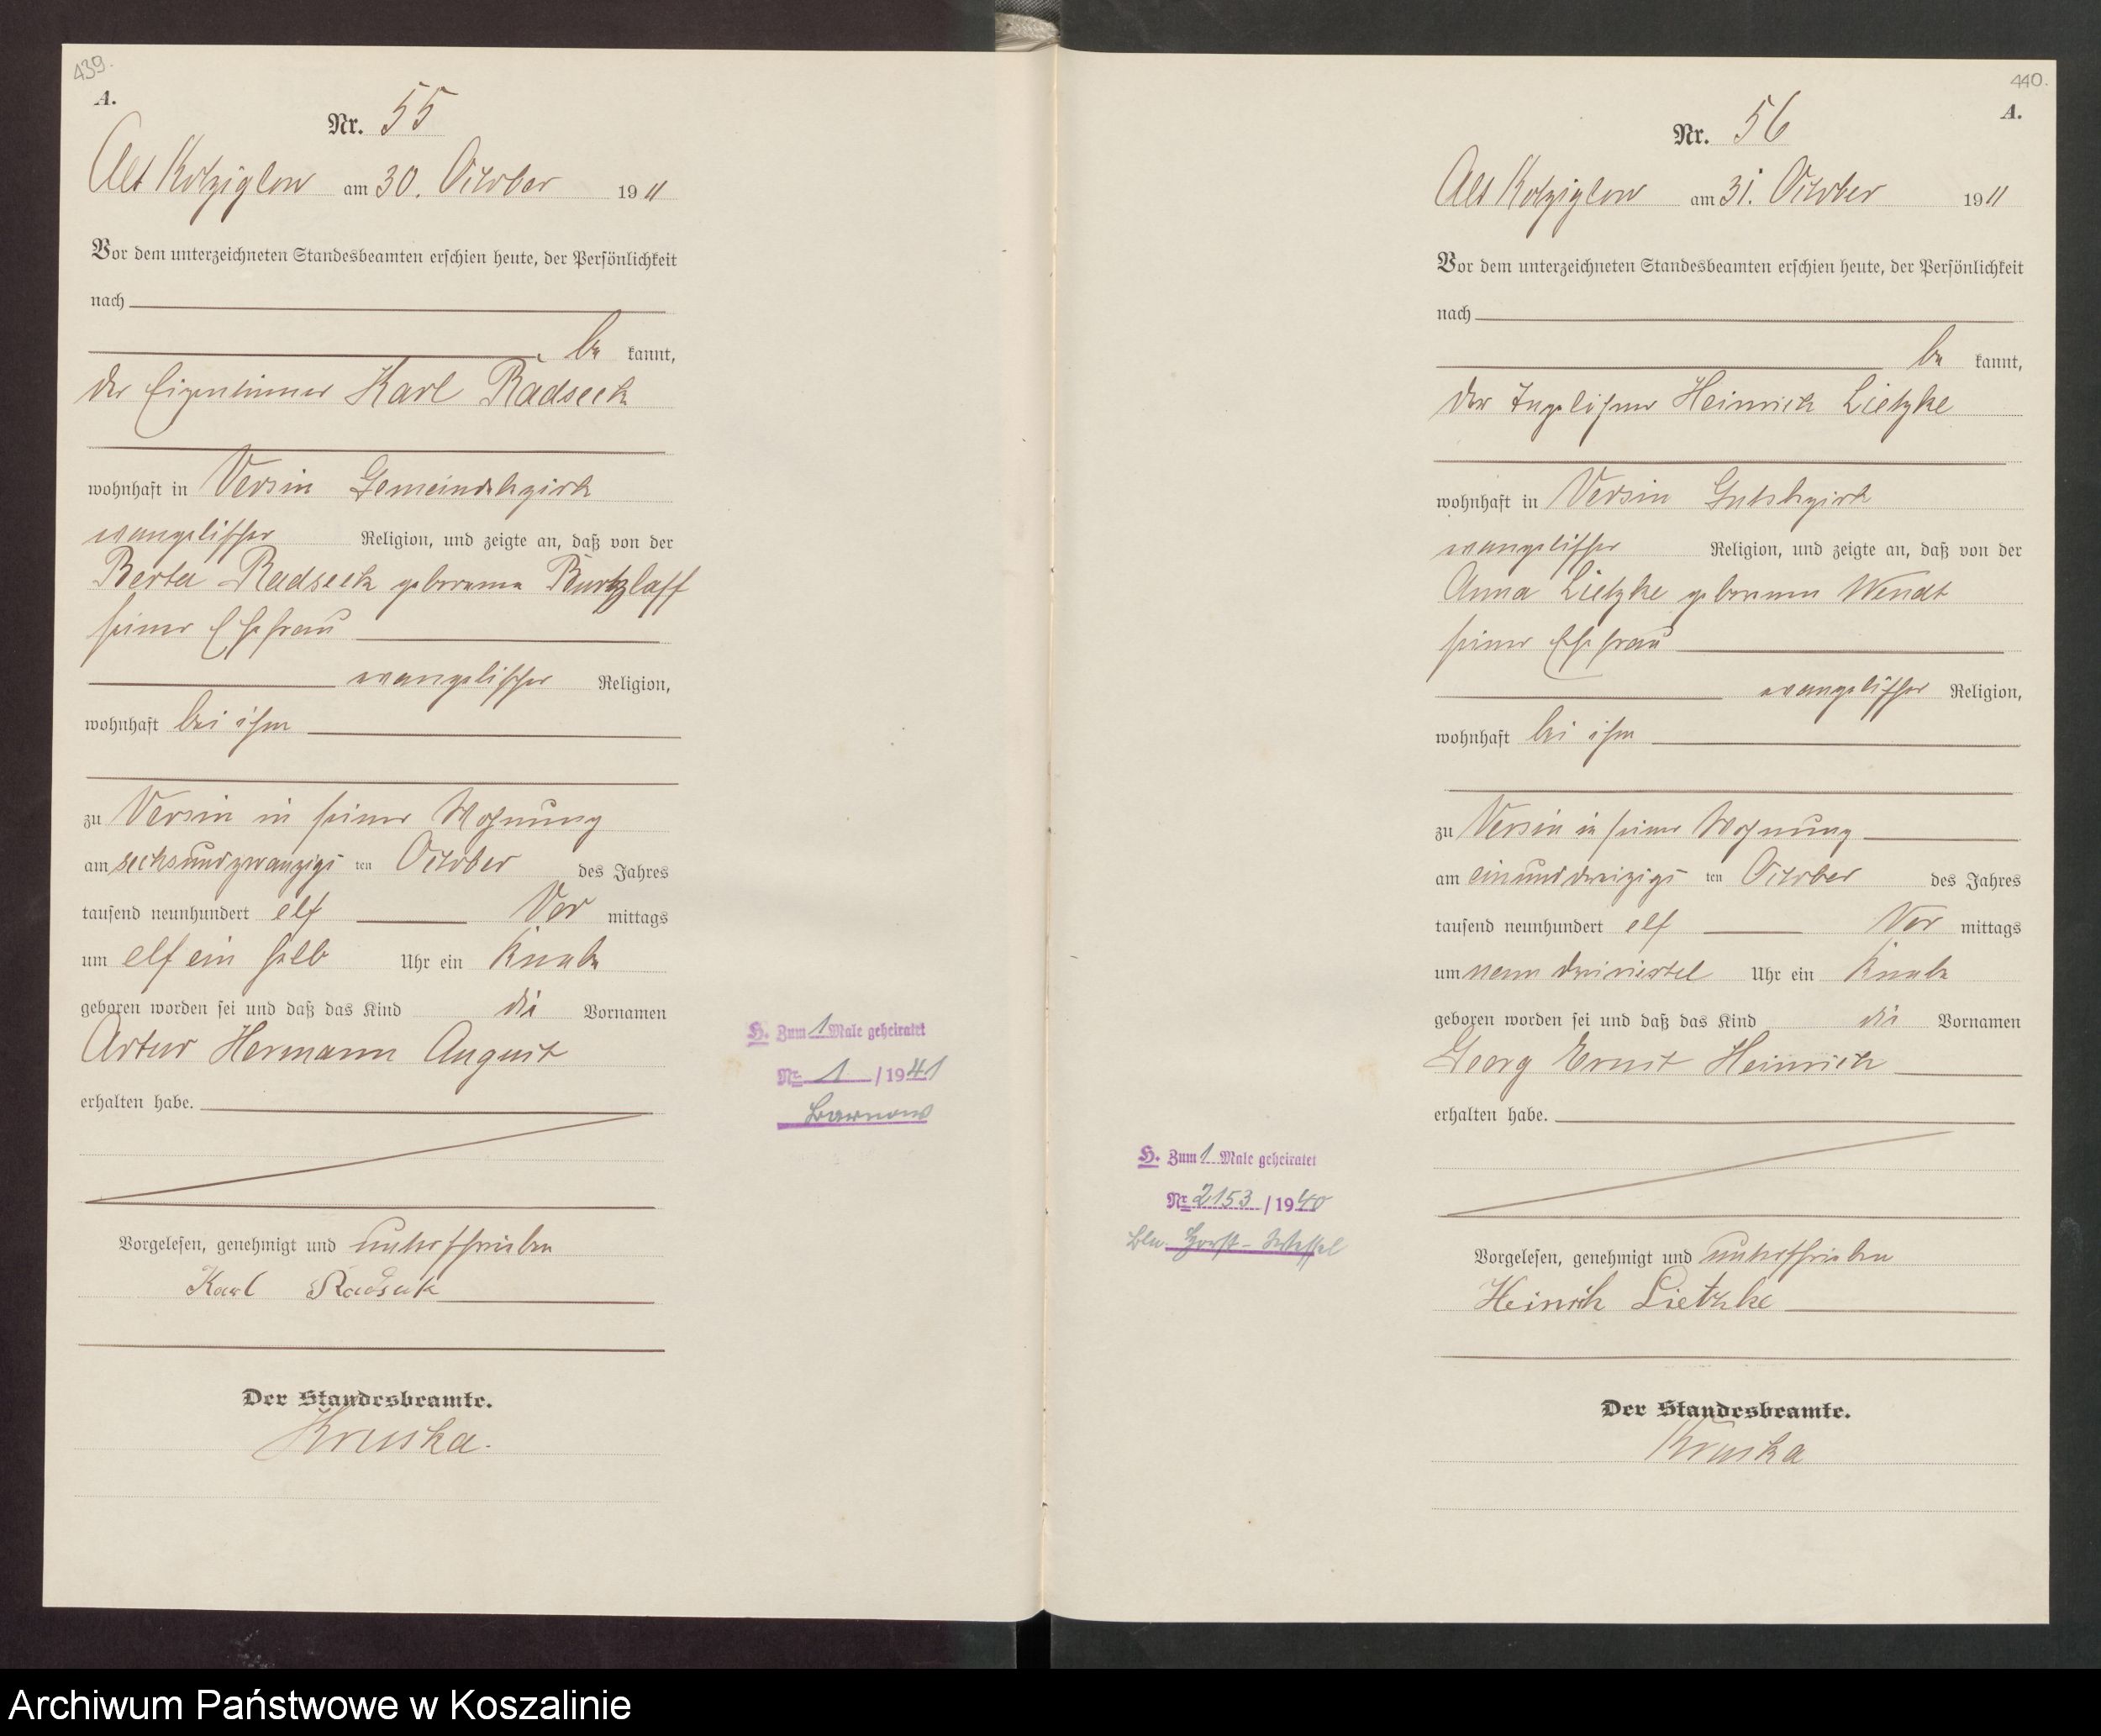 439.
A.
Nr. 55
Alt Kolziglow am 30. October 1911
Vor dem unterzeichneten Standesbeamten erschien heute, der Persönlichkeit
nach
be kannt,
der Eigentümer Karl Radseck
wohnhaft in Versin Gemeindebezirk
evangelischer Religion, und zeigte an, daß von der
Berta Radseck geborenen Purtzlaff
seiner Ehefrau
evangelischer Religion,
wohnhaft bei ihm
zu Versin in seiner Wohnung
am sechsundzwanzigs ten October des Jahres
tausend neunhundert elf Vor mittags
um elf ein halb Uhr ein Knabe
geboren worden sei und daß das Kind die Vornamen
Artur Hermann August
erhalten habe.
Vorgelesen, genehmigt und unterschrieben
Karl Radseck
Der Standesbeamte.
Kruska.
H. Zum 1 Male geheiratet
Nr. 1 / 1941
Barnow
440.
A.
Nr. 56
Alt Kolziglow am 31. October 1911
Vor dem unterzeichneten Standesbeamten erschien heute, der Persönlichkeit
nach
be kannt,
der Tagelöhner Heinrich Lietzke
wohnhaft in Versin Gutsbezirk
evangelischer Religion, und zeigte an, daß von der
Anna Lietzke geborenen Wendt
seiner Ehefrau
evangelischer Religion,
wohnhaft bei ihm
zu Versin in seiner Wohnung
am einunddreizigs ten October des Jahres
tausend neunhundert elf Vor mittags
um neun dreiviertel Uhr ein Knabe
geboren worden sei und daß das Kind die Vornamen
Georg Ernst Heinrich
erhalten habe.
Vorgelesen, genehmigt und unterschrieben
Heinrich Lietzke
Der Standesbeamte.
Kruska
H. Zum 1 Male geheiratet
Nr. 2153 / 1940
Bln. Horst-Wessel
Archiwum Państwowe w Koszalinie